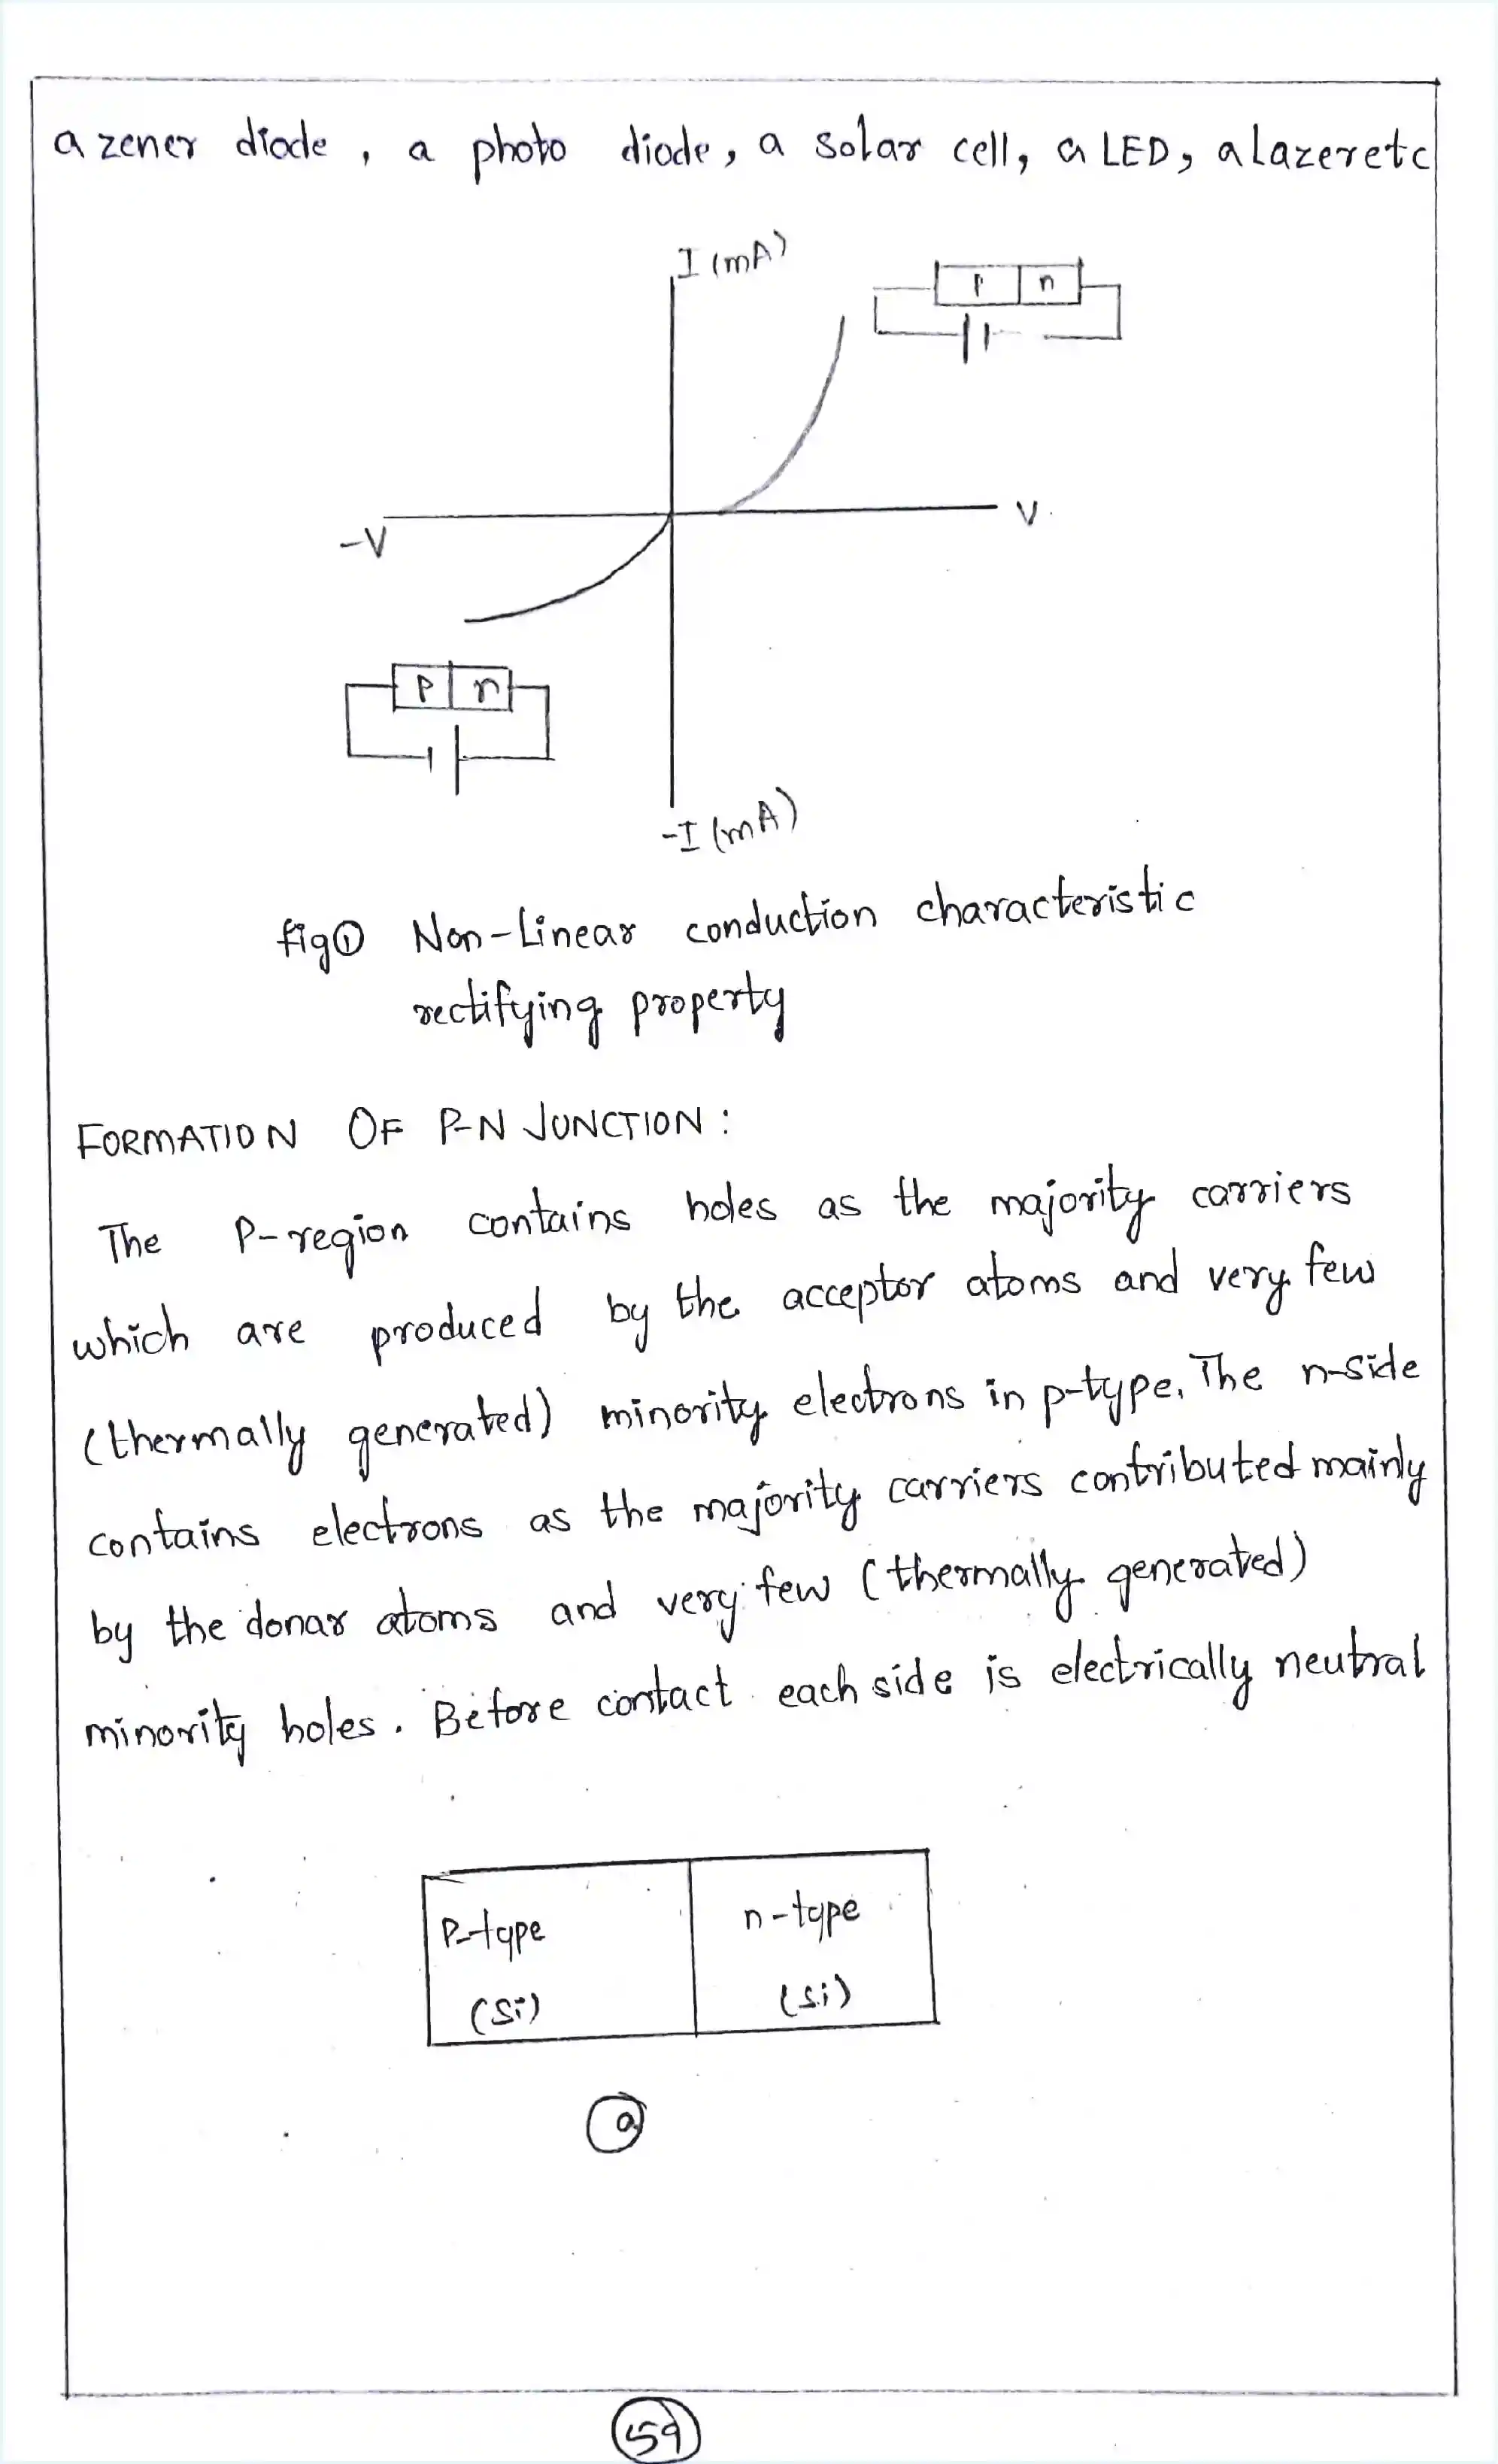 a zener diode , a photo diode, a solar cell, a LED, a lazer etc
I (mA)
p n
V
-V
p n
-I (mA)
fig① Non-Linear conduction characteristic
rectifying property
FORMATION OF P-N JUNCTION :
The P-region contains holes as the majority carriers
which are produced by the acceptor atoms and very few
(thermally generated) minority electrons in p-type. The n-side
contains electrons as the majority carriers contributed mainly
by the donar atoms and very few (thermally generated)
minority holes. Before contact each side is electrically neutral
P-type n-type
(Si) (Si)
ⓐ
59